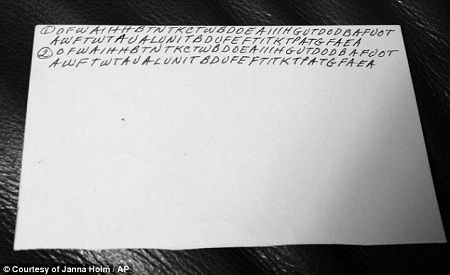 ① OFWAIHHBTNTKCTWBDOEAIIIHGUTDODBAFUOT
AWFTWTAUALUNITBDUFEFTITKTPATGFAEA
② OFWAIHHBTNTKCTWBDOEAIIIHGUTDODBAFUOT
AWFTWTAUALUNITBDUFEFTITKTPATGFAEA
© Courtesy of Janna Holm / AP